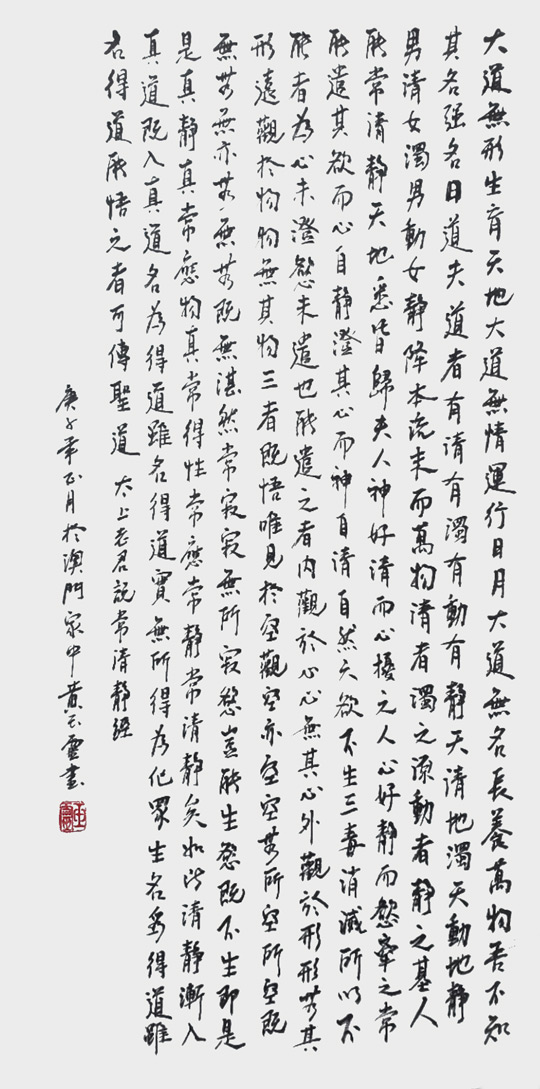 大道無形生育天地大道無情運行日月大道無名長養萬物吾不知
其名强名日道夫道者有清有濁有動有靜天清地濁天動地靜
男清女濁男動女靜降本流末而萬物清者濁之源動者靜之基人
能常清靜天地悉皆歸夫人神好清而心擾之人心好靜而慾牽之常
能遣其欲而心自靜澄其心而神自清自然六欲不生三毒消滅所以不
能者為心未澄慾未遣也能遣之者內觀於心心無其心外觀於形形無其
形遠觀於物物無其物三者既悟唯見於空觀空亦空空無所空所空既
無無無亦無無無既無湛然常寂寂無所寂慾豈能生慾既不生即是
是真靜真常應物真常得性常應常靜常清靜矣如此清靜漸入
真道既入真道名為得道雖名得道實無所得為化眾生名為得道雖
名得道能悟之者可傳聖道 太上老君說常清靜經
庚子年正月於澳門家中黃靈書